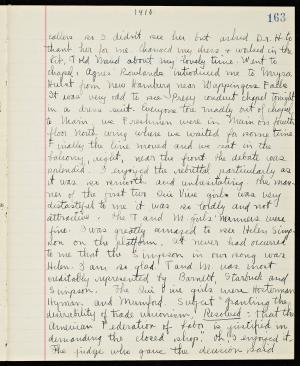 1910
163
callers so I didn't see her but asked Dr. H to
thank her for me. Changed my dress & walked in the
Pit. Told Maud about my lovely time. Went to
chapel. Agnes Rowlands introduced me to Myra
Hulst from New Hamburg near Wappingers Falls
It was very odd to see Prexy conduct chapel tonight
in a dress suit. Everyone tore madly out of chapel
to Main, we Freshmen were in Main on fourth
floor North wing where we waited for some time
Finally the line moved and we sat in the
balcony, right, near the front. The debate was
splendid. I enjoyed the rebuttal particularly as
it was so smooth and unhesitating. The man-
ner of the most two Qui Vive girls was very
distasteful to me it was so coldly and not
attractive. The T and M girls' manners were
fine. I was greatly amazed to see Helen Simp-
son on the platform. It never had occurred
to me that the Simpson in our song was
Helen. I am so glad. T and M was most
creditably represented by Barnett, Starbuck and
Simpson. The Qui Vive girls were
Hyman and Mumford. Subject "Granting the
desirability of trade unionism, Resolved: That the
American Federation of Labor is justified in
demanding the closed shop." Oh I enjoyed it.
The judge who gave the decision said